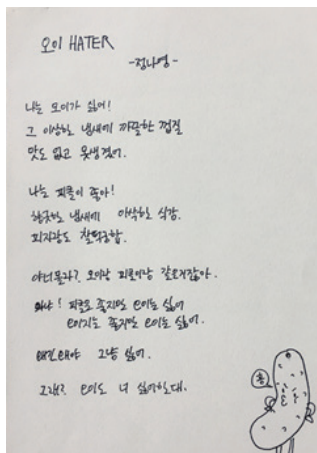 오이 HATER
-정나영-
나는 오이가 싫어!
그 이상한 냄새에 까끌한 껍질
맛도 없고 못생겼어.
나는 피클이 좋아!
향긋한 냄새에 아삭한 식감.
피자랑도 찰떡궁합.
야 너 몰라? 오이랑 피클이랑 같은거잖아.
뭐냐! 피클은 좋지만 오이는 싫어
오이지는 좋지만 오이는 싫어.
왜긴 왜야 그냥 싫어.
그래? 오이도 너 싫어한대.
흥